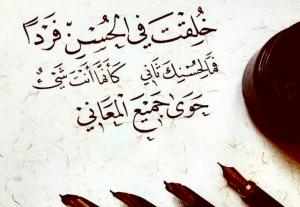 خُلِقْتَ فِي الْحُسْنِ فَرْدًا
فَمَا لِحُسْنِكَ ثَانِي كَأَنَّمَا أَنْتَ شَيْءٌ
حَوَى جَمِيعَ الْمَعَانِي